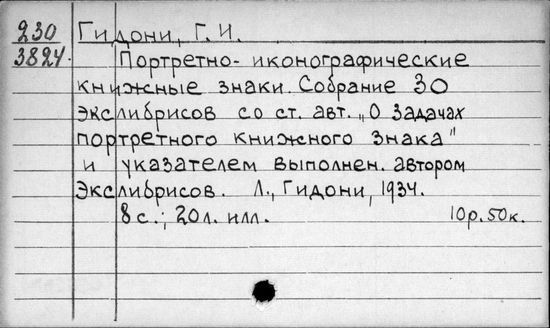 230 Гидони, Г. И.
3824. Портретно- иконографические
книжные знаки. Собрание 30
экслибрисов со ст. авт. „О задачах
портретного книжного знака"
и указателем выполнен. автором
экслибрисов. Л., Гидони, 1934.
8 с.; 20 л. илл. 10р. 50к.